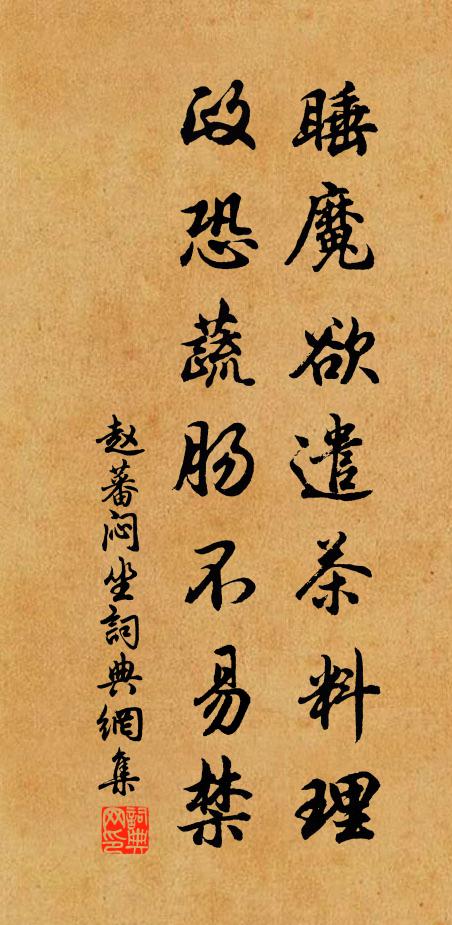 睡魔欲遣茶料理
政恐蔬肠不易禁
赵蕃闷坐詞典網集
詞典网印